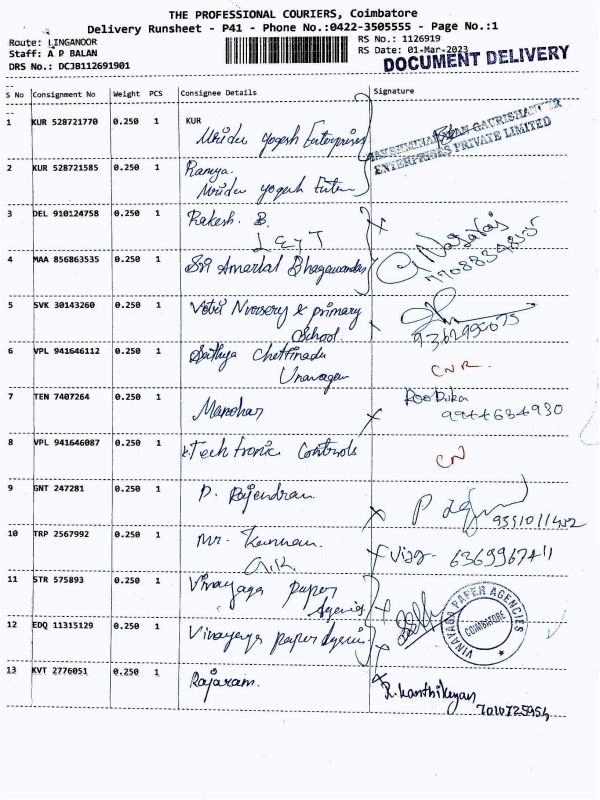 THE PROFESSIONAL COURIERS, Coimbatore
Delivery Runsheet - P41 - Phone No.:0422-3505555 - Page No.:1
Route: LINGANOOR
RS No.: 1126919
Staff: A P BALAN
RS Date: 01-Mar-2023
DRS No.: DCJB112691901
DOCUMENT DELIVERY
S No Consignment No Weight PCS Consignee Details Signature
1 KUR 528721770 0.250 1 KUR
Mridu yogesh Enterprises
ENTERPRISES PRIVATE LIMITED
2 KUR 528721585 0.250 1 Ramya.
Mridu yogesh
3 DEL 910124758 0.250 1 Rakesh. B.
L & T
Nagaraj
4 MAA 856863535 0.250 1 Sri Amarlal Bhagawandas
5 SVK 30143260 0.250 1 Vetri Nursery & primary
School.
6 VPL 941646112 0.250 1 Sathya Chettinadu
CNR.
7 TEN 7407264 0.250 1 Manohar
9944634930
8 VPL 941646087 0.250 1 Tech tronic Controls
CN
9 GNT 247281 0.250 1 P. Rajendran.
10 TRP 2567992 0.250 1 Mr. Kannan.
11 STR 575893 0.250 1 Vinayaga paper
VINAYAGA PAPER AGENCIES
COIMBATORE
12 EDQ 11315129 0.250 1 Vinayaga paper
13 KVT 2776051 0.250 1 Rajaram.
R. Karthikeyan